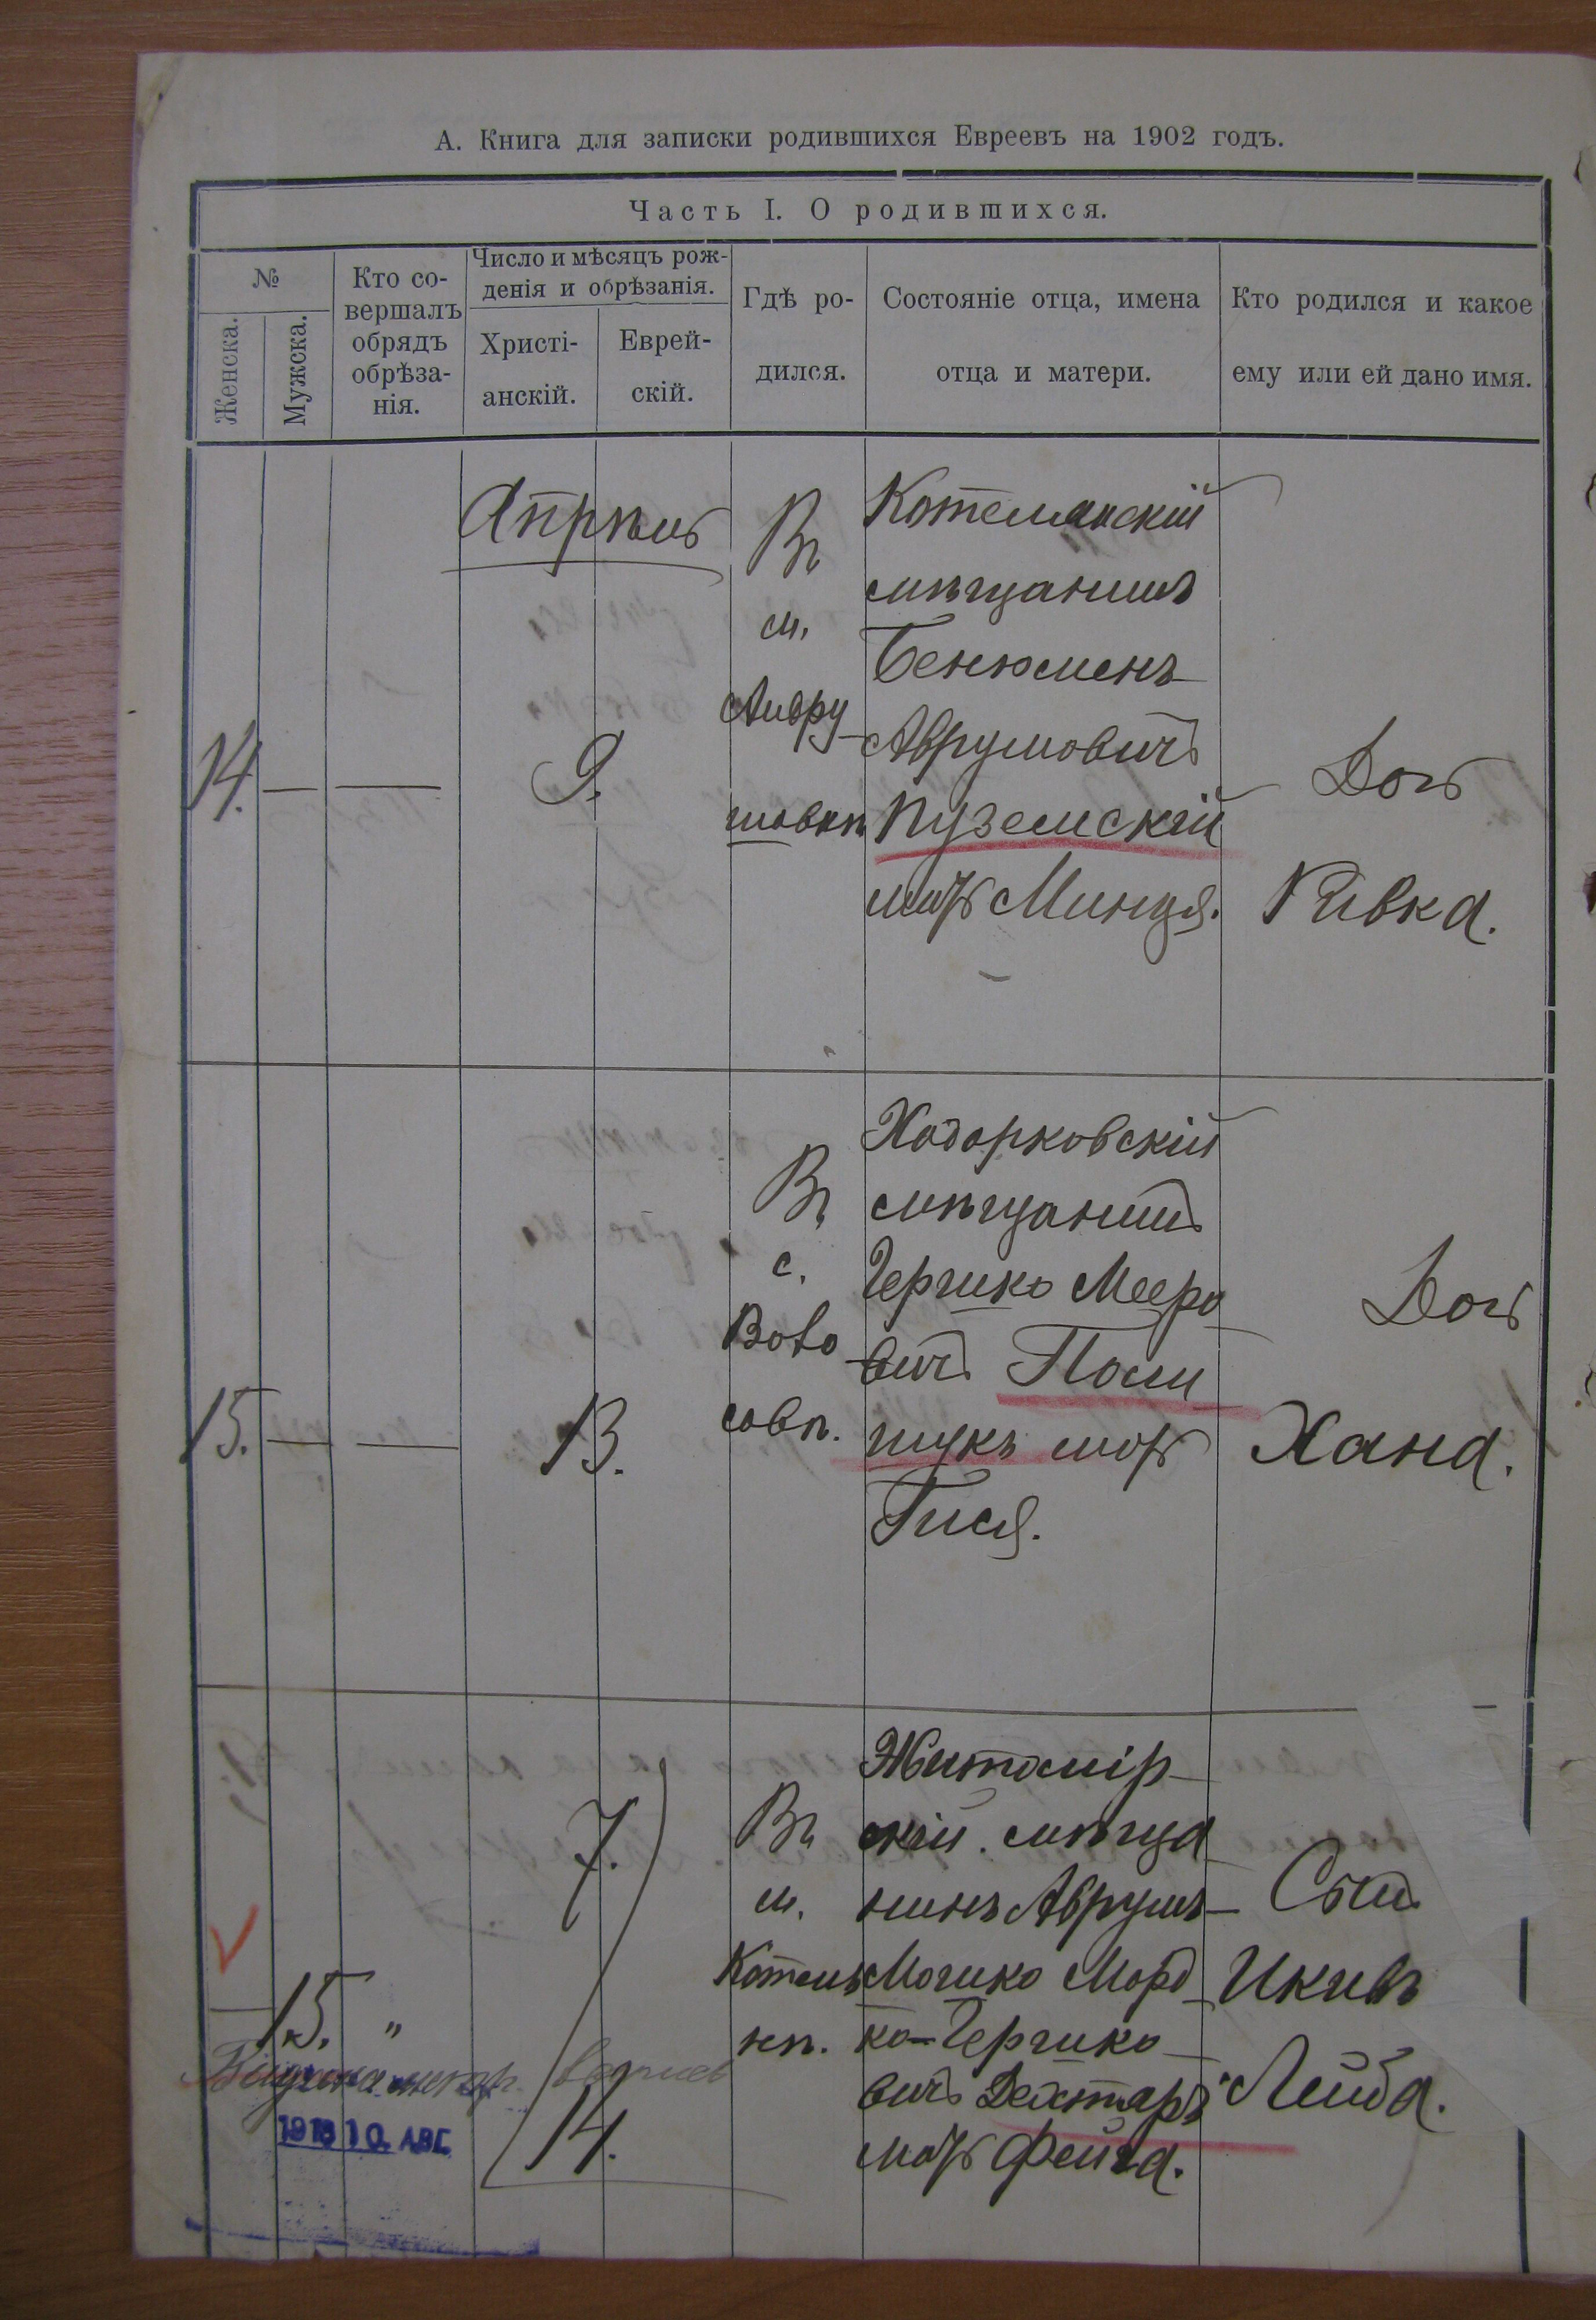 А. Книга для записки родившихся Евреевъ на 1902 годъ.
Часть I. О родившихся.
№
Женска.
Мужска.
Кто со-
вершалъ
обрядъ
обрѣза-
нія.
Число и мѣсяцъ рож-
денія и обрѣзанія.
Христі-
анскій.
Еврей-
скій.
Гдѣ ро-
дился.
Состояніе отца, имена
отца и матери.
Кто родился и какое
ему или ей дано имя.
Апрѣль
14.
—
—
9.
Въ
м.
Андру
шовкѣ
Котелянскій
мѣщанинъ
Бенюменъ
Аврумовичъ
Пуземскій
мать Минця.
Дочь
Ривка.
15.
—
—
13.
Въ
с.
Воло
совѣ.
Ходорковскій
мѣщанинъ
Гершко Мееро
вичъ Поли
щукъ мать
Гися.
Дочь
Хана.
15.
"
7.
14.
Въ
м.
Котель
нѣ.
Житомір-
скій мѣща
нинъ Аврумъ-
Мошко Морд
ко-Гершко
вичъ Дехтярь
мать Фейга.
Сынъ
Икивъ
Лейба.
1918 10 АВГ.